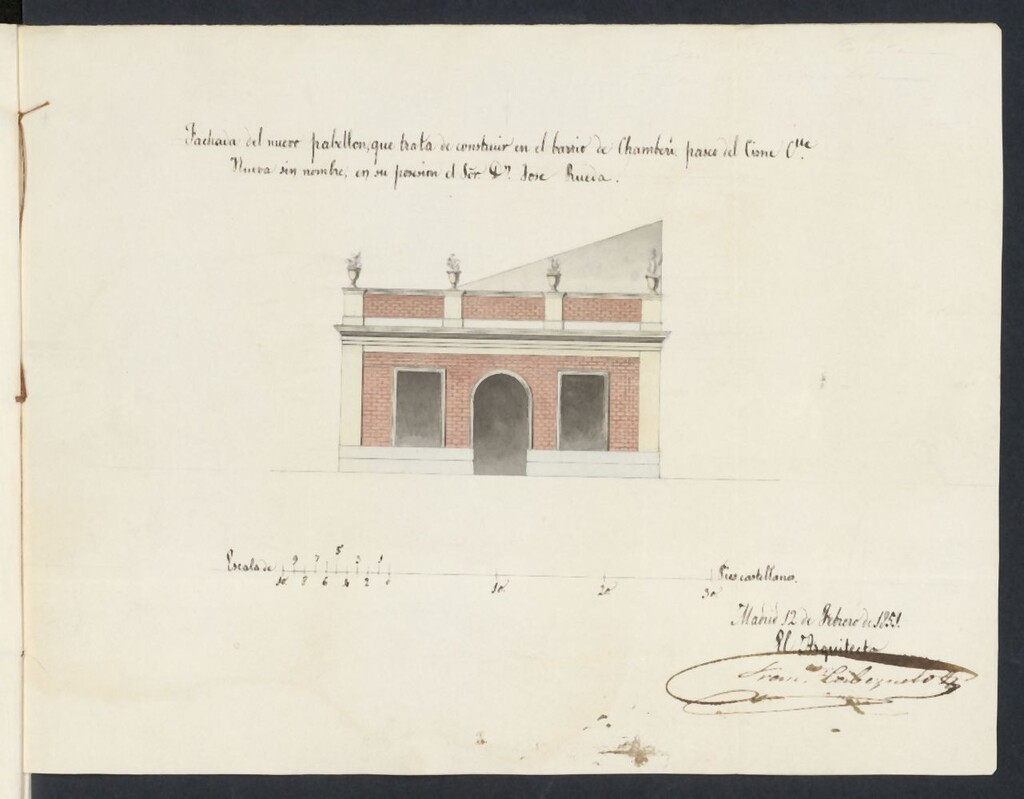 Fachada del nuevo pabellon, que trata de construir en el barrio de Chamberí, paseo del Cisne C.lle
Nueva sin nombre, en su posesion el Sor. Dn. Jose Rueda.
9 7 5 3 1
Escala de Pies castellanos.
10 8 6 4 2 0 10 20 30
Madrid 12 de Febrero de 1851.
El Arquitecto
Franco. Cabezuelo